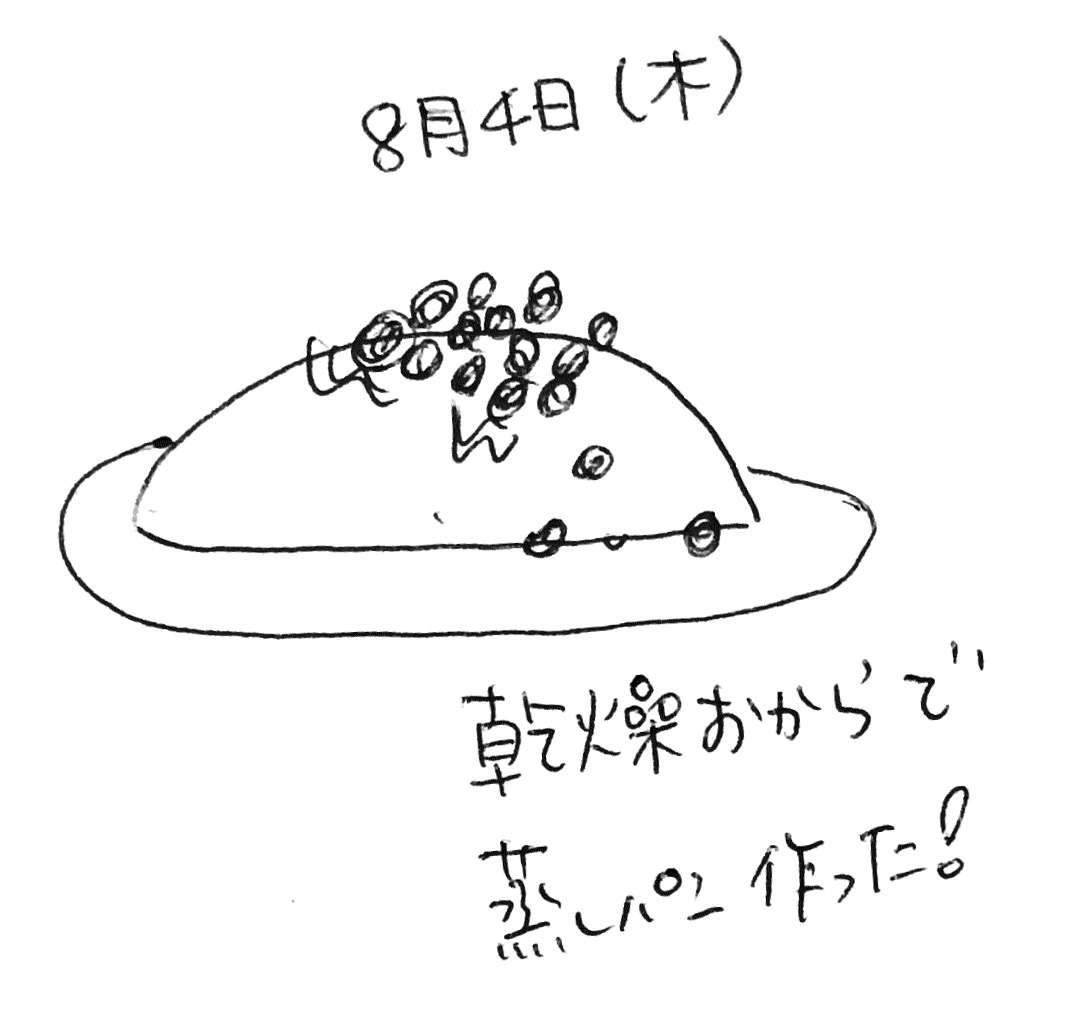 8月4日(木)
乾燥おからで
蒸しパン作った!